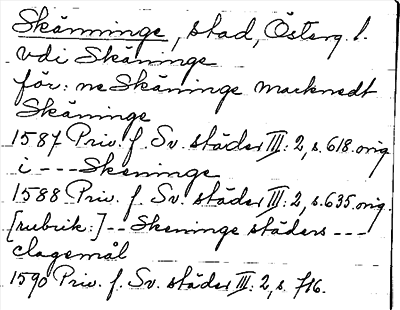 Skänninge, stad, Österg. l.
vdi Skäninge
för: ne Skäninge marknedt
Skäninge
1587 Priv. f. Sv. städer III: 2, s. 618. orig.
i - - - Skeninge
1588 Priv. f. Sv. städer III: 2, s. 635. orig.
[rubrik:] - - Skeninge städers - - -
clagemål
1590 Priv. f. Sv. städer III: 2, s. 716.